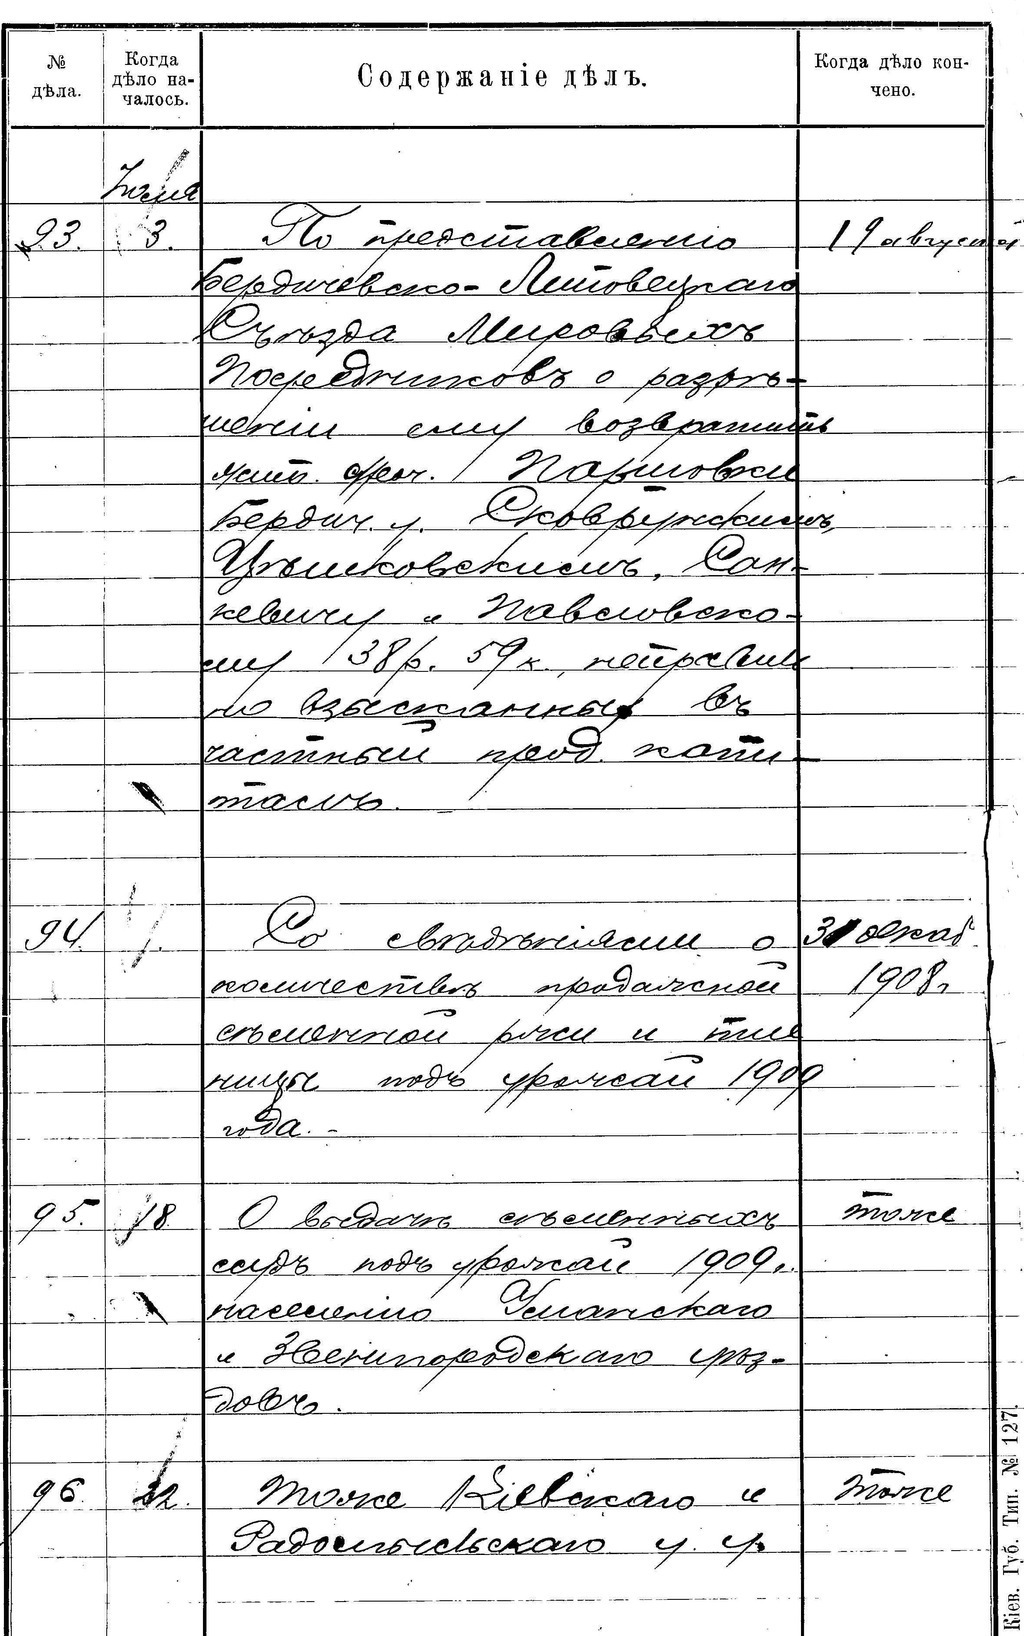 № дѣла.
Когда дѣло на-
чалось.
Содержаніе дѣлъ.
Когда дѣло кон-
чено.
Іюля
93. 3. По представленію 19 августа
Бердичевско-Липовецкаго
Съѣзда Мировыхъ
Посредниковъ о разрѣ-
шеніи ему возвратить
жит. дер. Паршовки
Бердич. у. Сковрунскимъ,
Цѣшковскимъ, Сан-
кевичу и Павловско-
му 38 р. 59 к., неправиль
но взысканныя въ
частный прод. капи-
талъ.
94. Со свѣдѣніями о 31 декаб
количествѣ продажной 1908 г.
сѣменной ржи и пше
ницы подъ урожай 1909
года.-
95. 18 О выдачѣ сѣменныхъ тоже
ссудъ подъ урожай 1909 г.
населенію Уманскаго
и Звенигородскаго уѣз-
довъ.
96. 22. Тоже Кіевскаго и тоже
Радомысльскаго у. у.
Кіев. Губ. Тип. № 127.